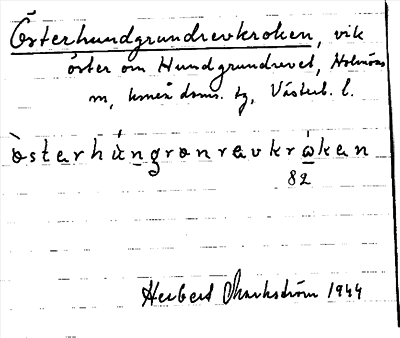 Österhundgrundrevkroken, vik
öster om Hundgrundrevet, Holmöns
sn, Umeå doms. tg, Västerb. l.
òstərhúŋgrənrəvkrɷ́kən
82
Herbert Markström 1944